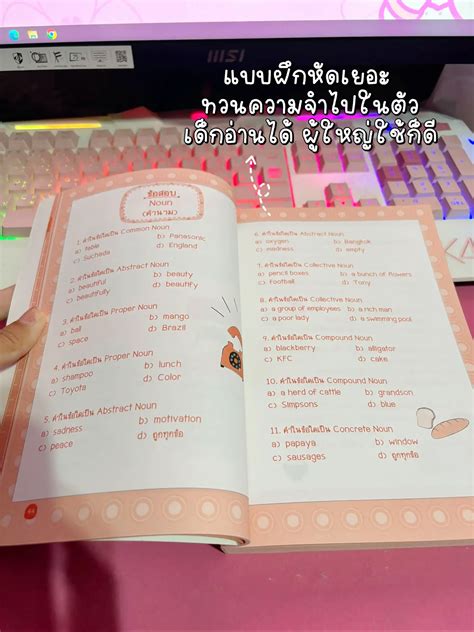 msi
แบบฝึกหัดเยอะ
ทวนความจำไปในตัว
เด็กอ่านได้ ผู้ใหญ่ใช้ก็ดี
ข้อสอบ
Noun
(คำนาม)
1. คำในข้อใดเป็น Common Noun
a) table b) Panasonic
c) Suchada d) England
2. คำในข้อใดเป็น Abstract Noun
a) beautiful b) beauty
c) beautifully d) beautify
3. คำในข้อใดเป็น Proper Noun
a) ball b) mango
c) space d) Brazil
4. คำในข้อใดเป็น Proper Noun
a) shampoo b) lunch
c) Toyota d) Color
5. คำในข้อใดเป็น Abstract Noun
a) sadness b) motivation
c) peace d) ถูกทุกข้อ
6. คำในข้อใดเป็น Abstract Noun
a) oxygen b) Bangkok
c) madness d) empty
7. คำในข้อใดเป็น Collective Noun
a) pencil boxes b) a bunch of flowers
c) Football d) Tony
8. คำในข้อใดเป็น Collective Noun
a) a group of employees b) a rich man
c) a poor lady d) a swimming pool
9. คำในข้อใดเป็น Compound Noun
a) blackberry b) alligator
c) KFC d) cake
10. คำในข้อใดเป็น Compound Noun
a) a herd of cattle b) grandson
c) Simpsons d) blue
11. คำในข้อใดเป็น Concrete Noun
a) papaya b) window
c) sausages d) ถูกทุกข้อ